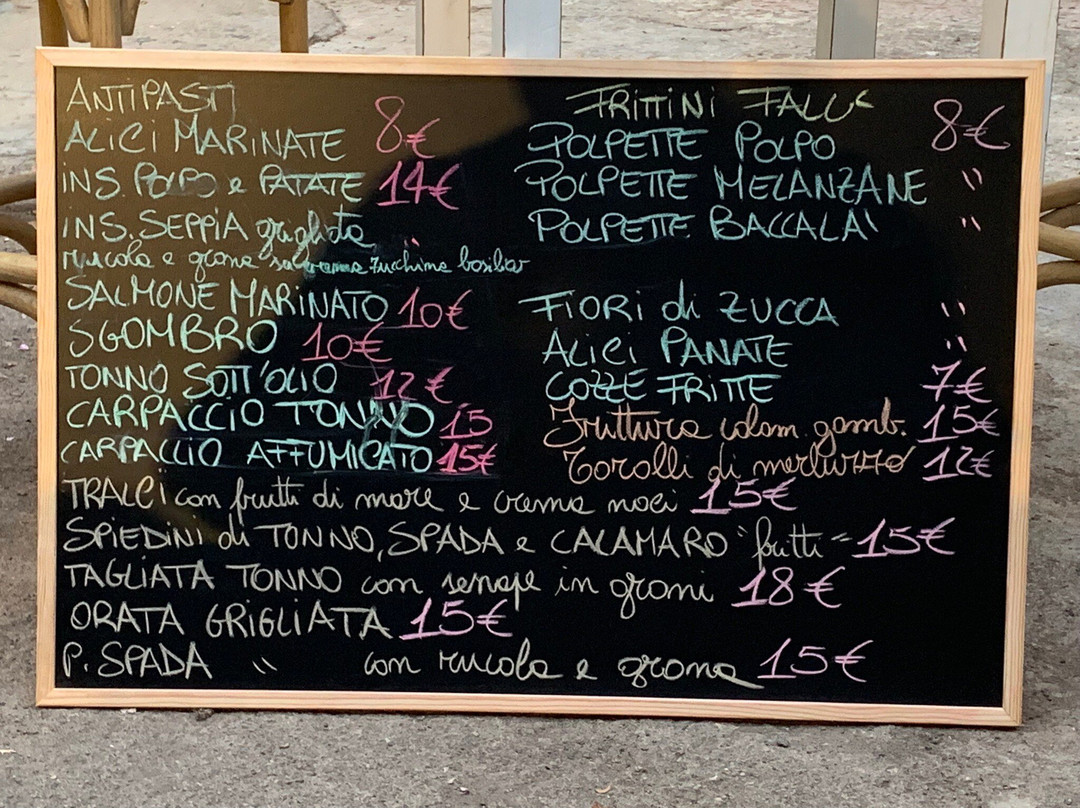 ANTIPASTI
ALICI MARINATE 8€
INS. POLPO e PATATE 14€
INS. SEPPIA grigliata "
rucola e grana su crema zucchine
SALMONE MARINATO 10€
SGOMBRO 10€
TONNO SOTT'OLIO 12€
CARPACCIO TONNO 15
CARPACCIO AFFUMICATO 15€
FRITTINI
POLPETTE POLPO 8€
POLPETTE MELANZANE "
POLPETTE BACCALA'
"
FIORI di ZUCCA "
ALICI PANATE "
COZZE FRITTE 7€
Frittura calam. gamb. 15€
di merluzzo 12€
TRALCI con frutti di mare e crema noci 15€
SPIEDINI di TONNO, SPADA e CALAMARO "fritti" 15€
TAGLIATA TONNO con senape in grani 18€
ORATA GRIGLIATA 15€
P. SPADA " con rucola e grana 15€